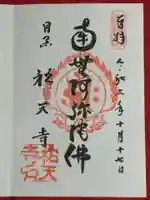 奉拝
令和三年十月十七日
南無阿弥陀佛
目黒
祐天寺
祐天
寺